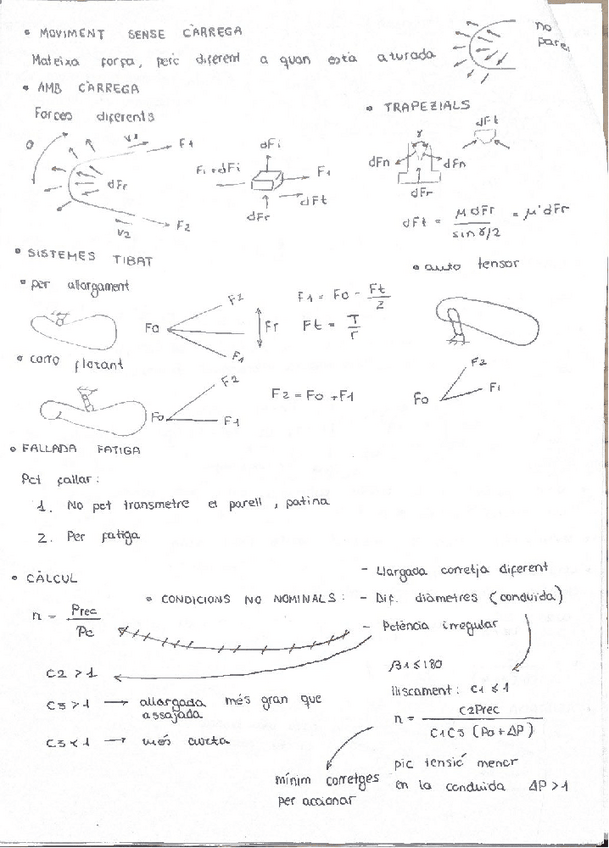 • MOVIMENT SENSE CÀRREGA
Mateixa força, però diferent a quan està aturada
no
• AMB CÀRREGA
Forces diferents
θ
V1
F1
dFr
V2
F2
dFi
Fi+dFi
F1
dFt
dFr
• TRAPEZIALS
γ
dFt
dFn
dFn
dFr
dFt = μdFr / sin γ/2 = μ'dFr
• SISTEMES TIBAT
• per allargament
F0
F2
Fr
F1
F1 = F0 - Ft/2
Ft = T/r
• auto tensor
F2
F0
F1
• corró flotant
F2
F0
F1
F2 = F0 + F1
• FALLADA FATIGA
Pot fallar:
1. No pot transmetre el parell, patina
2. Per fatiga
• CÀLCUL
n = Prec / Pc
• CONDICIONS NO NOMINALS:
- Llargada corretja diferent
- Dif. diàmetres (conduida)
- Potència irregular
C2 > 1
C3 > 1 → allargada més gran que assajada
C3 < 1 → més curta
β1 ≤ 180
lliscament: C1 ≤ 1
n = C2Prec / C1C3 (Po+ΔP)
mínim corretges
per accionar
pic tensió menor
en la conduida ΔP > 1